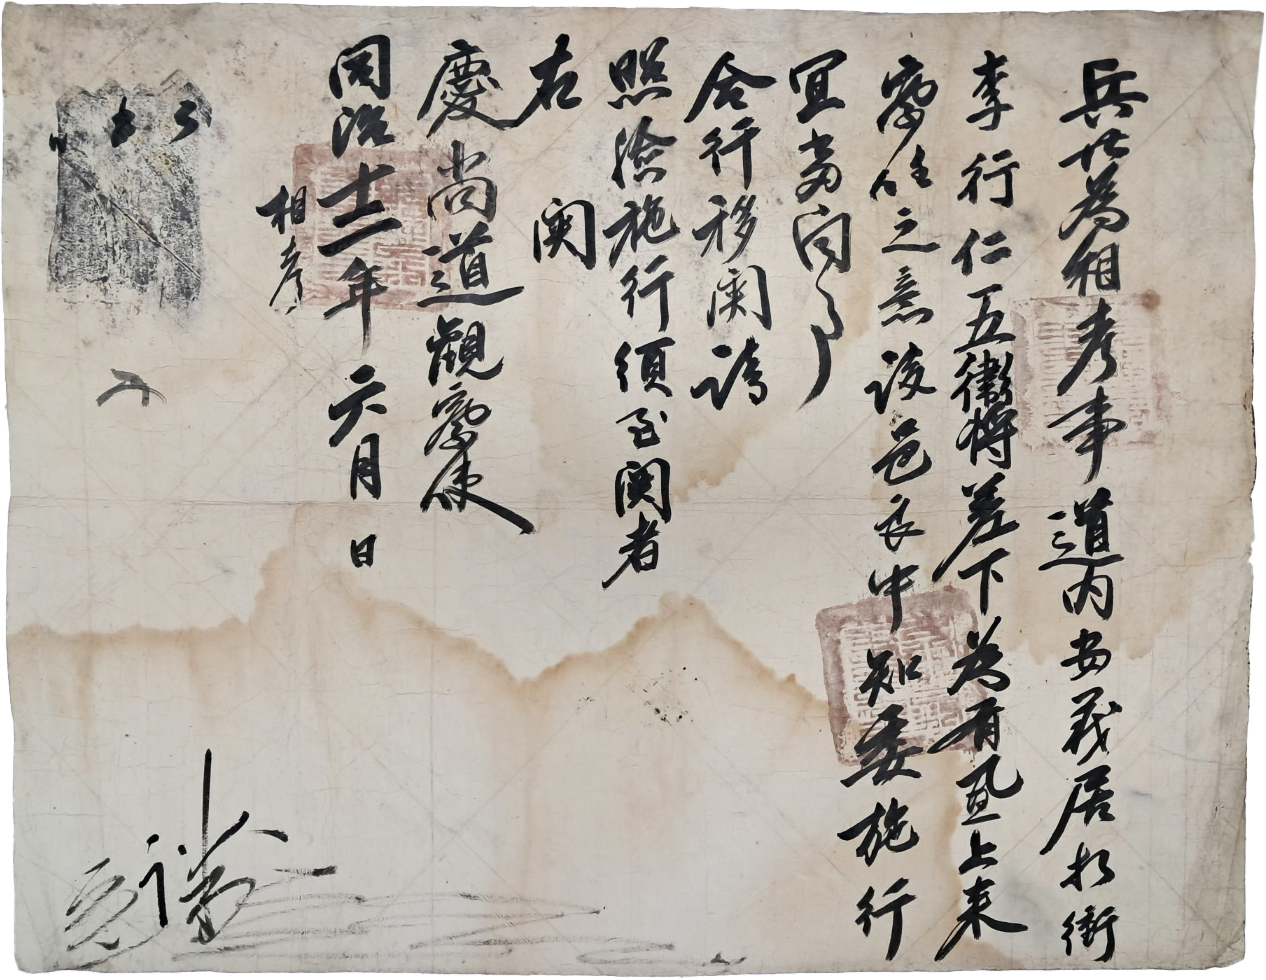 兵曹爲相考事道内安義居折衝
李行仁五衛將差下爲有置上來
察任之意該邑良中知委施行
宜當向事
合行移關請
照驗施行須至關者
右關
慶尚道觀察使
同治十二年六月 日
相考